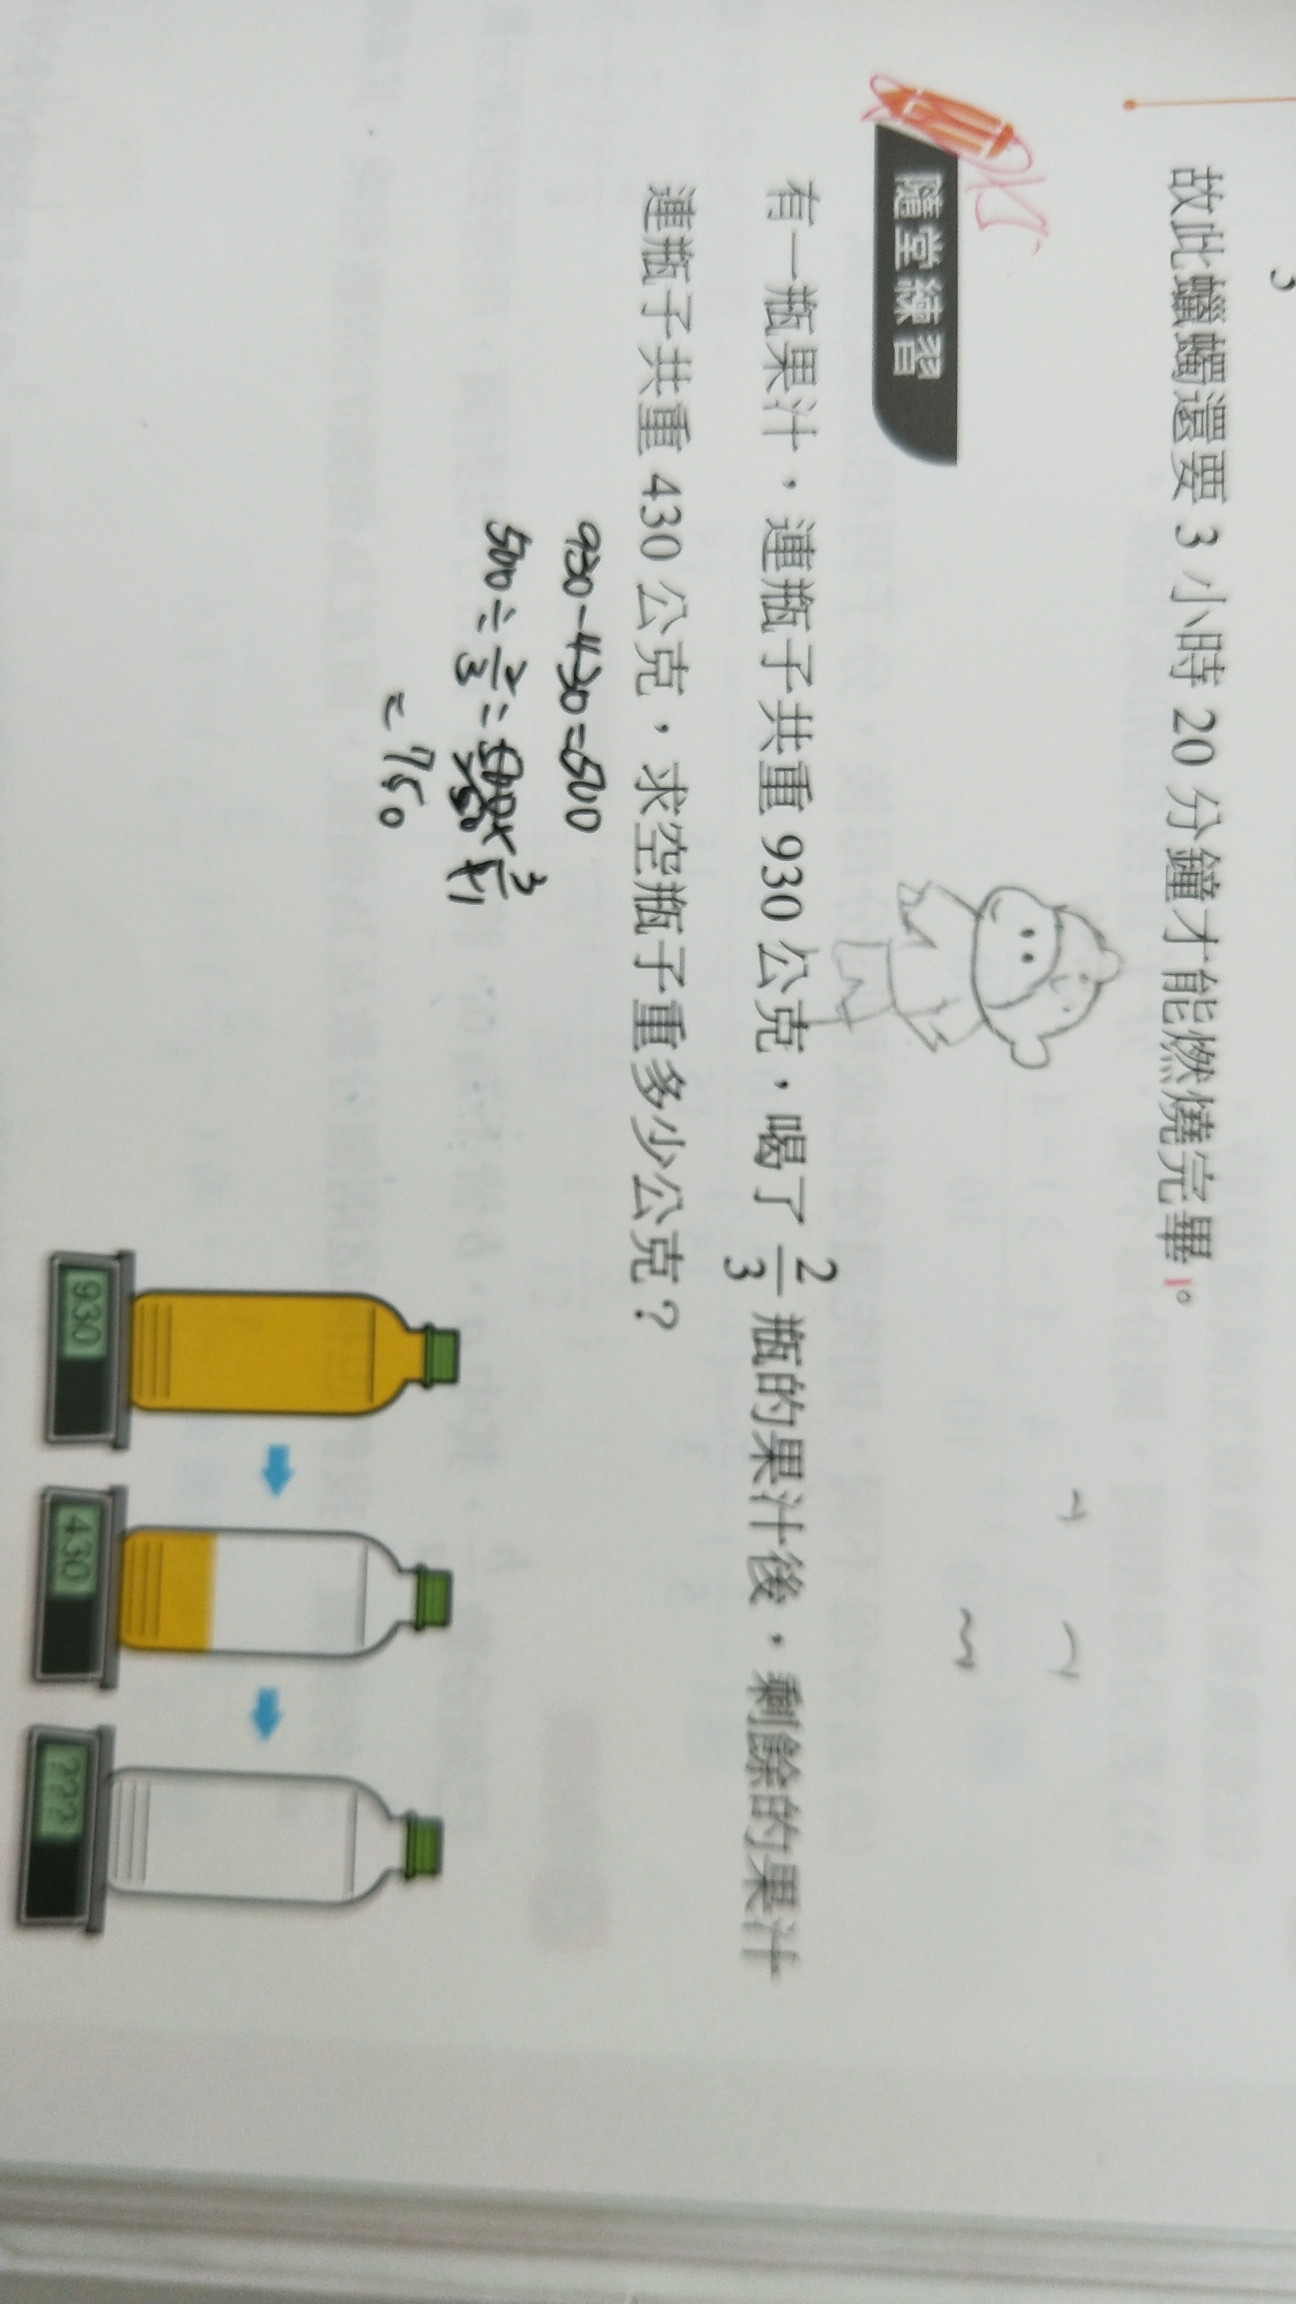 3
故此蠟蠋還要 3 小時 20 分鐘才能燃燒完畢。
隨堂練習
有一瓶果汁，連瓶子共重 930 公克，喝了 2/3 瓶的果汁後，剩餘的果汁
連瓶子共重 430 公克，求空瓶子重多少公克？
930-430=500
500÷2/3=
=750
930
430
???